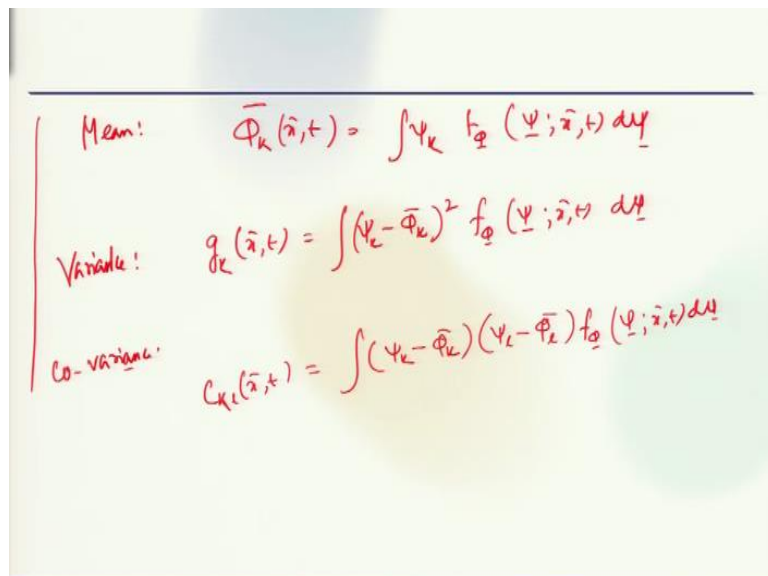 Mean: Φ̄_K(x̄,t) = ∫ψ_K f_Φ(ψ; x̄,t) dψ
Variance: g_K(x̄,t) = ∫(ψ_K - Φ̄_K)² f_Φ(ψ; x̄,t) dψ
Co-variance: C_Kl(x̄,t) = ∫(ψ_K - Φ̄_K)(ψ_l - Φ̄_l) f_Φ(ψ; x̄,t) dψ